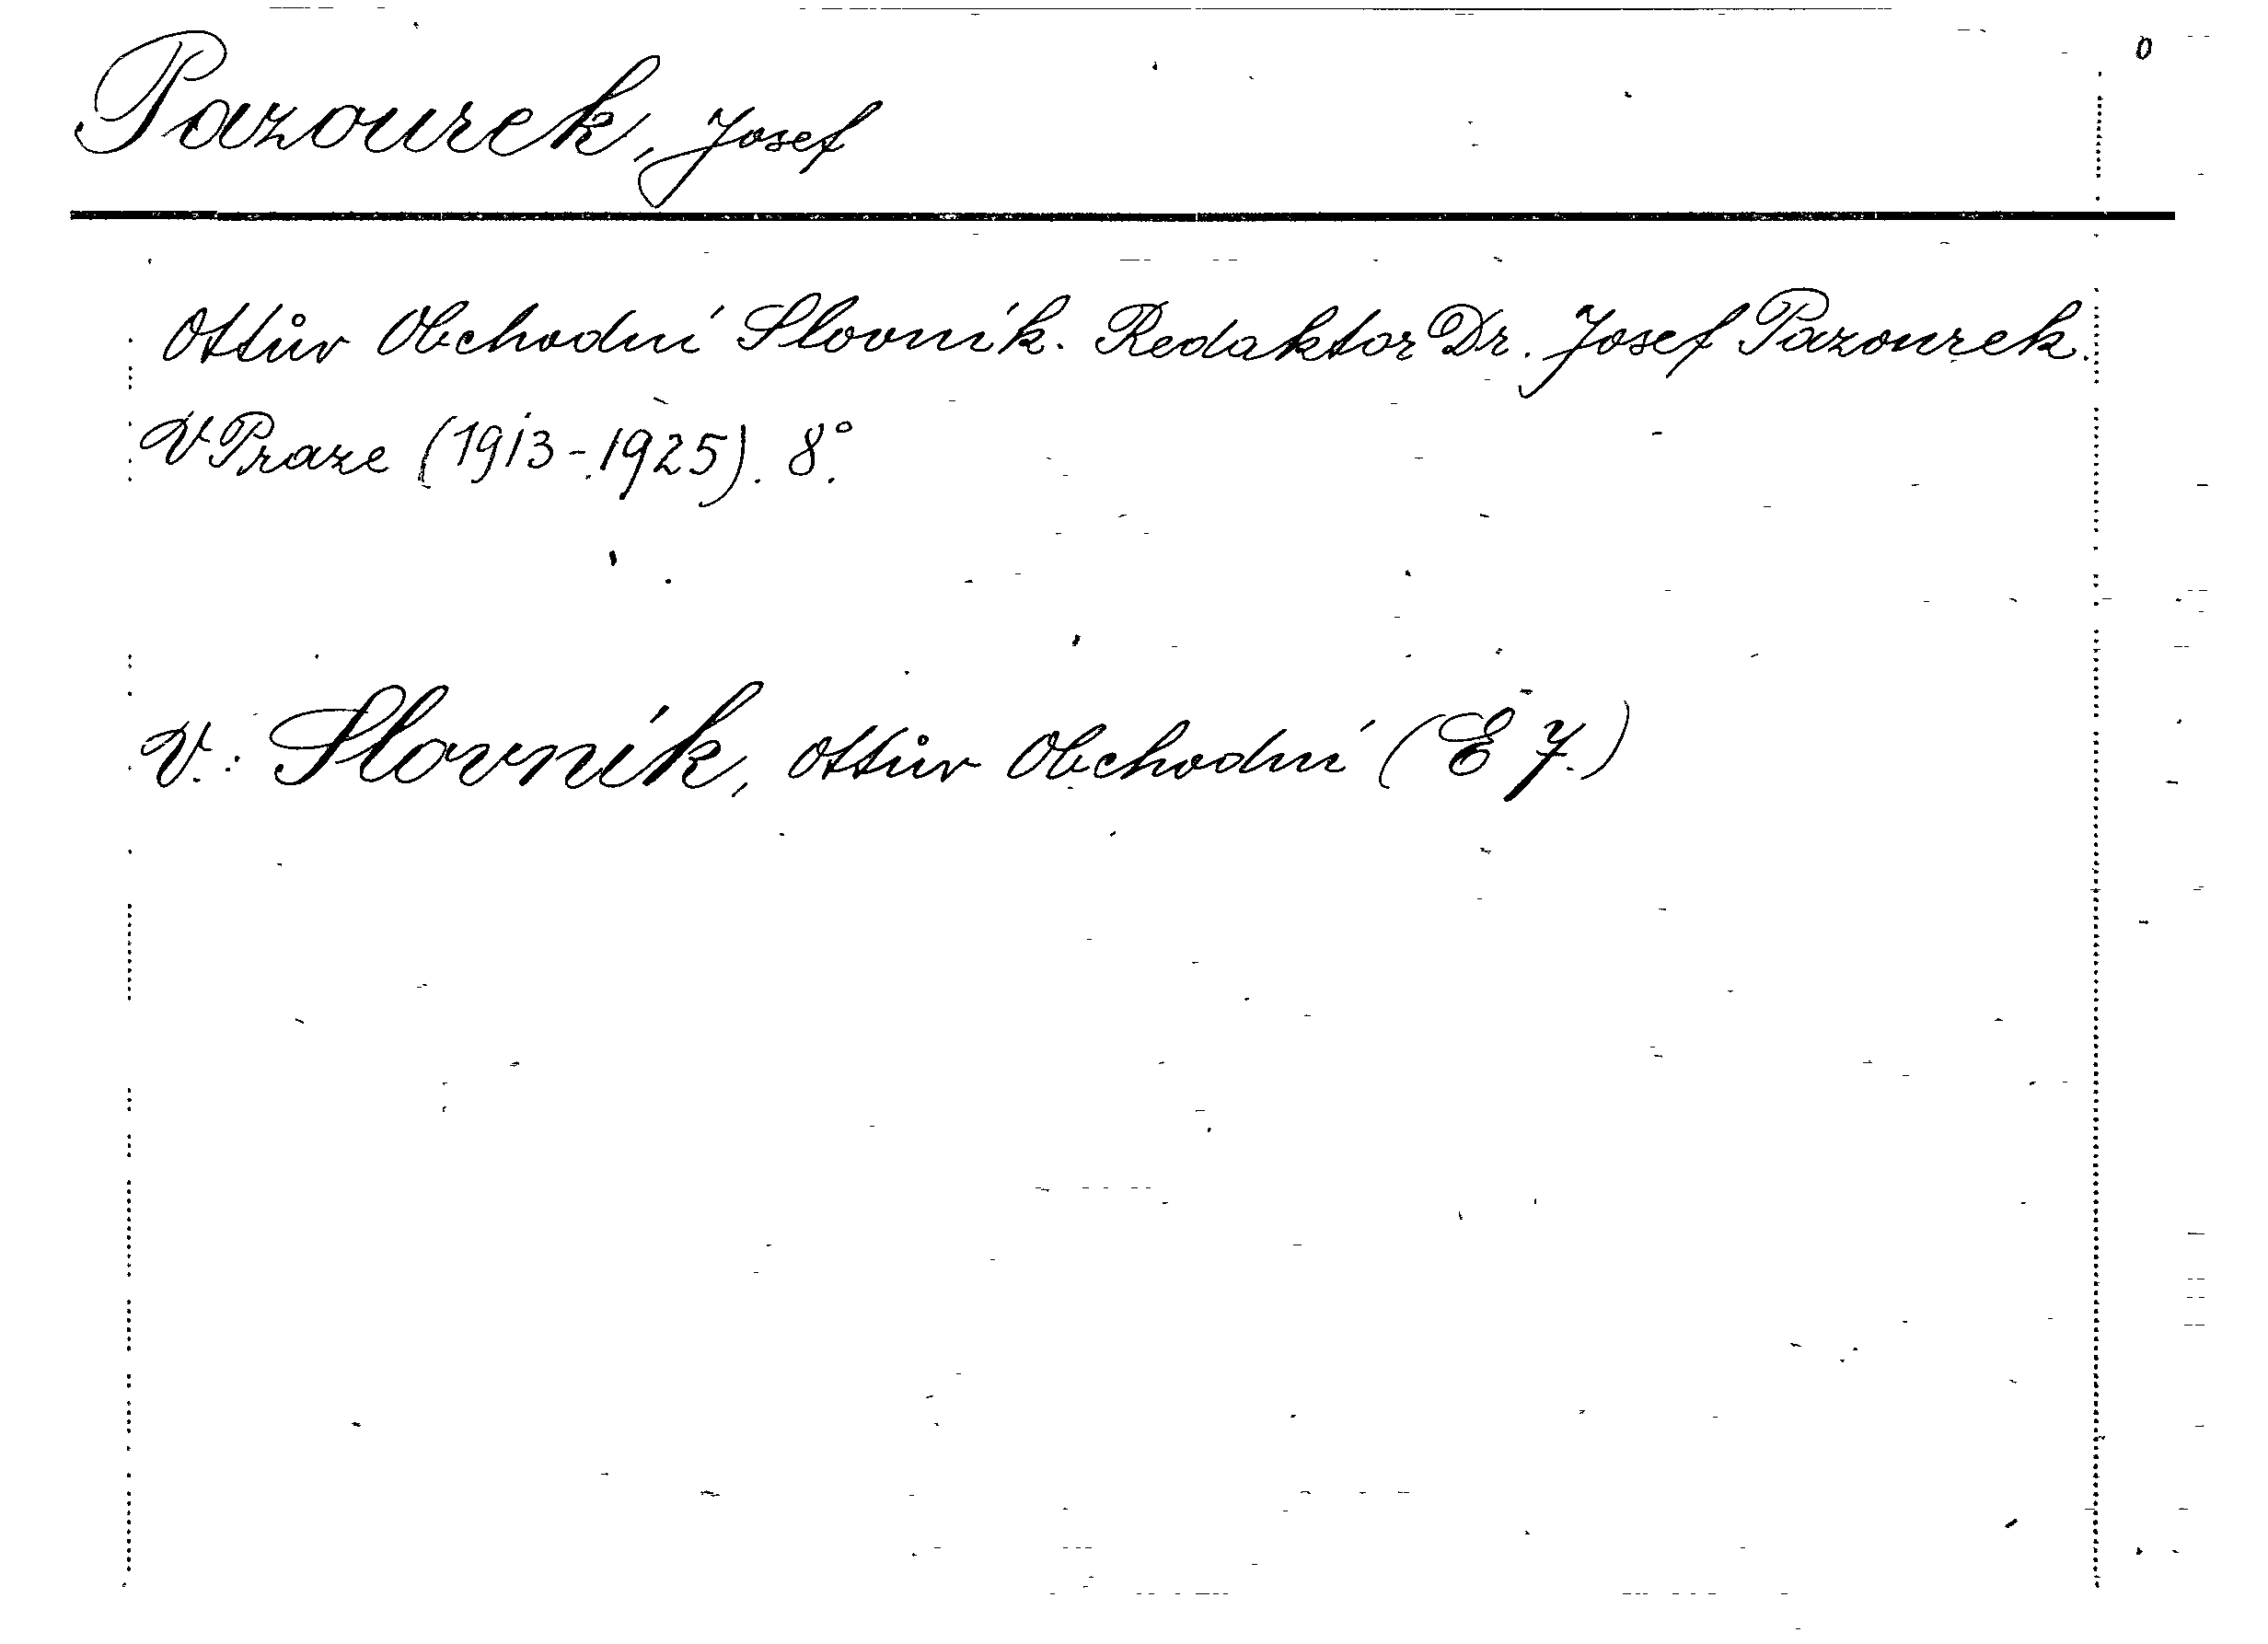 0
Pazourek, Josef
Ottův Obchodní Slovník. Redaktor Dr. Josef Pazourek.
V Praze (1913-1925). 8°.
V.: Slovník, Ottův Obchodní (E 7.)